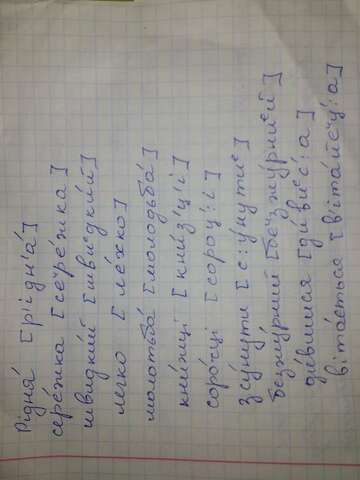 Рідня́ [р'ідн'а́]
сере́жка [сеире́жка]
швидки́й [швиедки́й]
легко [ле́хко]
молотьба́ [молодьба́]
кни́жці [кни́з'ц'і]
соро́чці [сороц':і]
зсу́нути [с:у́нутие]
безжу́рний [беизжу́рний]
ди́вишися [ди́виес':а]
віта́ється [віта́йец':а]